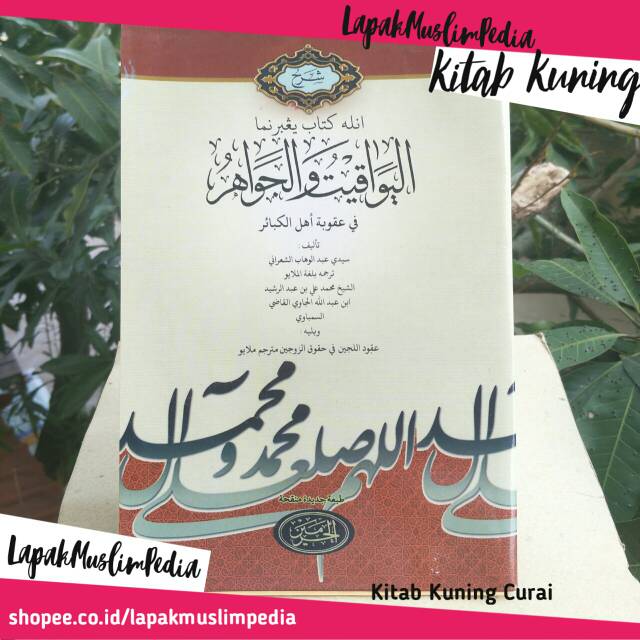 LapakMuslimPedia
Kitab Kuning
شرح
انله كتاب يڠبرنما
اليَوَاقِيْتُ وَالجَوَاهِرُ
في عقوبة أهل الكبائر
تأليف :
سيدي عبد الوهاب الشعراني
ترجمه بلغة الملايو
الشيخ محمد علي بن عبد الرشيد
ابن عبد الله الجاوي القاضي
السمباوي
ويليه :
عقود اللجين في حقوق الزوجين مترجم ملايو
اللهم صل على محمد وعلى آل محمد
طبعة جديدة منقحة
الحرمين
LapakMuslimPedia
Kitab Kuning Curai
shopee.co.id/lapakmuslimpedia